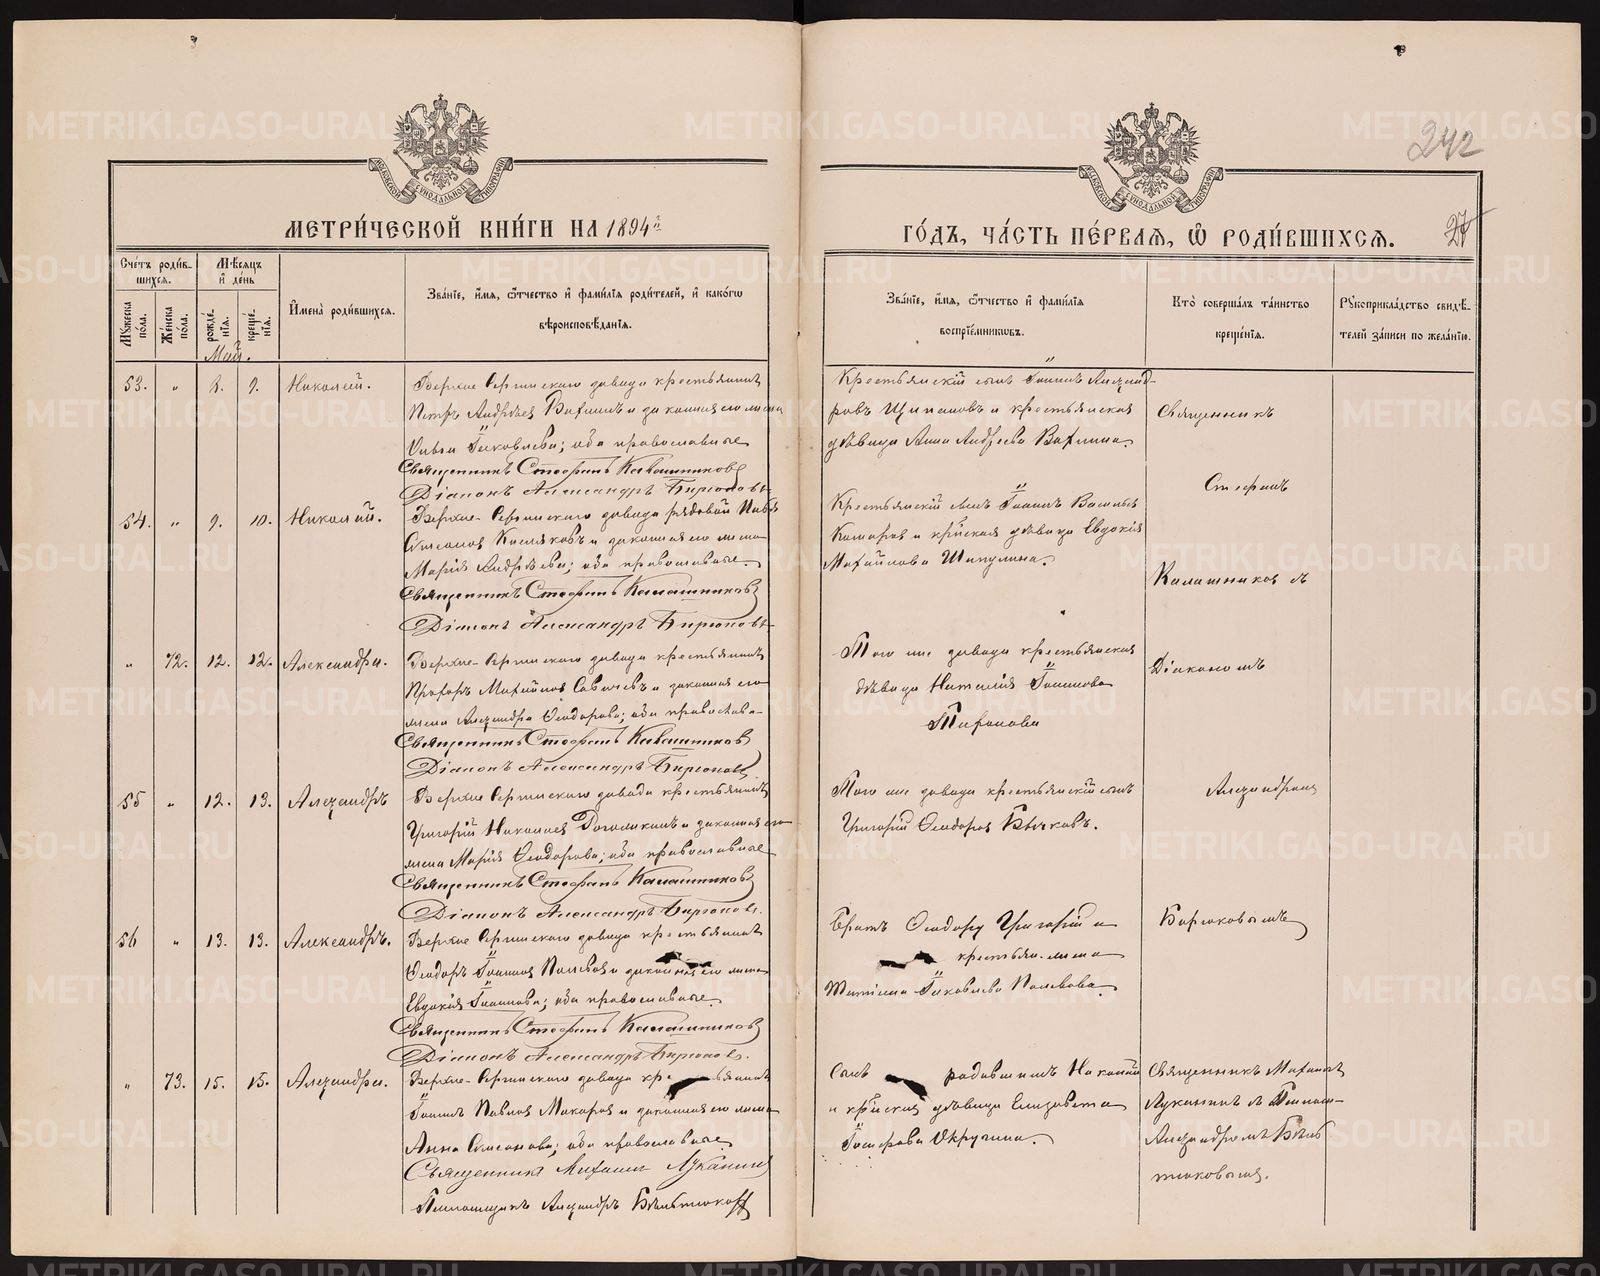 242
МЕТРИ́ЧЕСКОЙ КНИ́ГИ НА 1894й
ГО́ДЪ, ЧА́СТЬ ПЕ́РВАЯ, Ѡ҆ РОДИ́ВШИХСЯ.
27
Сче́тъ роди́в-
шихся.
Мѣ́сяцъ
и҆ де́нь
Му́жеска по́ла.
Же́нска по́ла.
рожде́нїя.
креще́нїя.
И҆мена̀ роди́вшихся.
Зва́нїе, и҆́мя, ѻ҆́тчество и҆ фами́лїя роди́телей, и҆ како́гѡ
вѣроисповѣ́данїя.
Зва́нїе, и҆́мя, ѻ҆́тчество и҆ фами́лїя
воспрїе́мникѡвъ.
Кто̀ соверша́лъ та́инство
креще́нїя.
Рꙋкоприкла́дство свидѣ́-
телей за́писи по жела́нїю.
Май.
53. „ 8. 9. Николай.
Верхне Сергинскаго завода крестьянинъ
Петръ Андреевъ Вахлинъ и законная его жена
Іаковлева; оба православные
Священникъ Стефанъ Калашниковъ
Діаконъ Александръ Бирюковъ
Крестьянскій сынъ Іоаннъ Александ-
ровъ Щипановъ и крестьянская
дѣвица Анна Андреева Вахлина.
Священникъ
Стефанъ
54. „ 9. 10. Николай.
Верхне-Сергинскаго завода рядовой
и законная его жена
Марія Андреева; оба православные.
Священникъ Стефанъ Калашниковъ
Діаконъ Александръ Бирюковъ
Крестьянскій сынъ Іоаннъ Васильев
Комаровъ и кр̃нская дѣвица Евдокія
Михайлова Шипулина.
Калашниковъ съ
„ 72. 12. 12. Александра.
Верхне-Сергинскаго завода крестьянинъ
Михайловъ и законная его
жена Александра Ѳеодорова; оба православ-
Священникъ Стефанъ Калашниковъ
Діаконъ Александръ Бирюковъ
Того же завода крестьянская
дѣвица Наталія Іоаннова
Діакономъ
55 „ 12. 13. Александръ
Верхне Сергинскаго завода крестьянинъ
Григорій Николаевъ и законная его
жена Марія Ѳеодорова; оба православные
Священникъ Стефанъ Калашниковъ
Діаконъ Александръ Бирюковъ.
Того же завода крестьянскій сынъ
Григорій Ѳеодоровъ Бычковъ.
Александромъ
56 „ 13. 13. Александръ.
Верхне Сергинскаго завода крестьянинъ
Ѳеодоръ Іоанновъ Полевовъ и законная его жена
Евдокія Іоаннова; оба православные
Священникъ Стефанъ Калашниковъ
Діаконъ Александръ Бирюковъ.
Братъ Ѳеодору Григорій и
крестьян. жена
Татіана Іаковлева Полевова.
Бирюковымъ
„ 73. 15. 15. Александра.
Верхне-Сергинскаго завода кре стьянинъ
Іоаннъ Павловъ Макаровъ и законная его жена
Анна; оба православные
Священникъ Михаилъ Луканинъ
Псаломщикъ Александръ
Сынъ родившимъ Николай
и кр̃нская дѣвица Елизавета
Округина.
Священникъ Михаилъ
Луканинъ съ Псалом-
Александромъ Бѣль
тюковымъ.